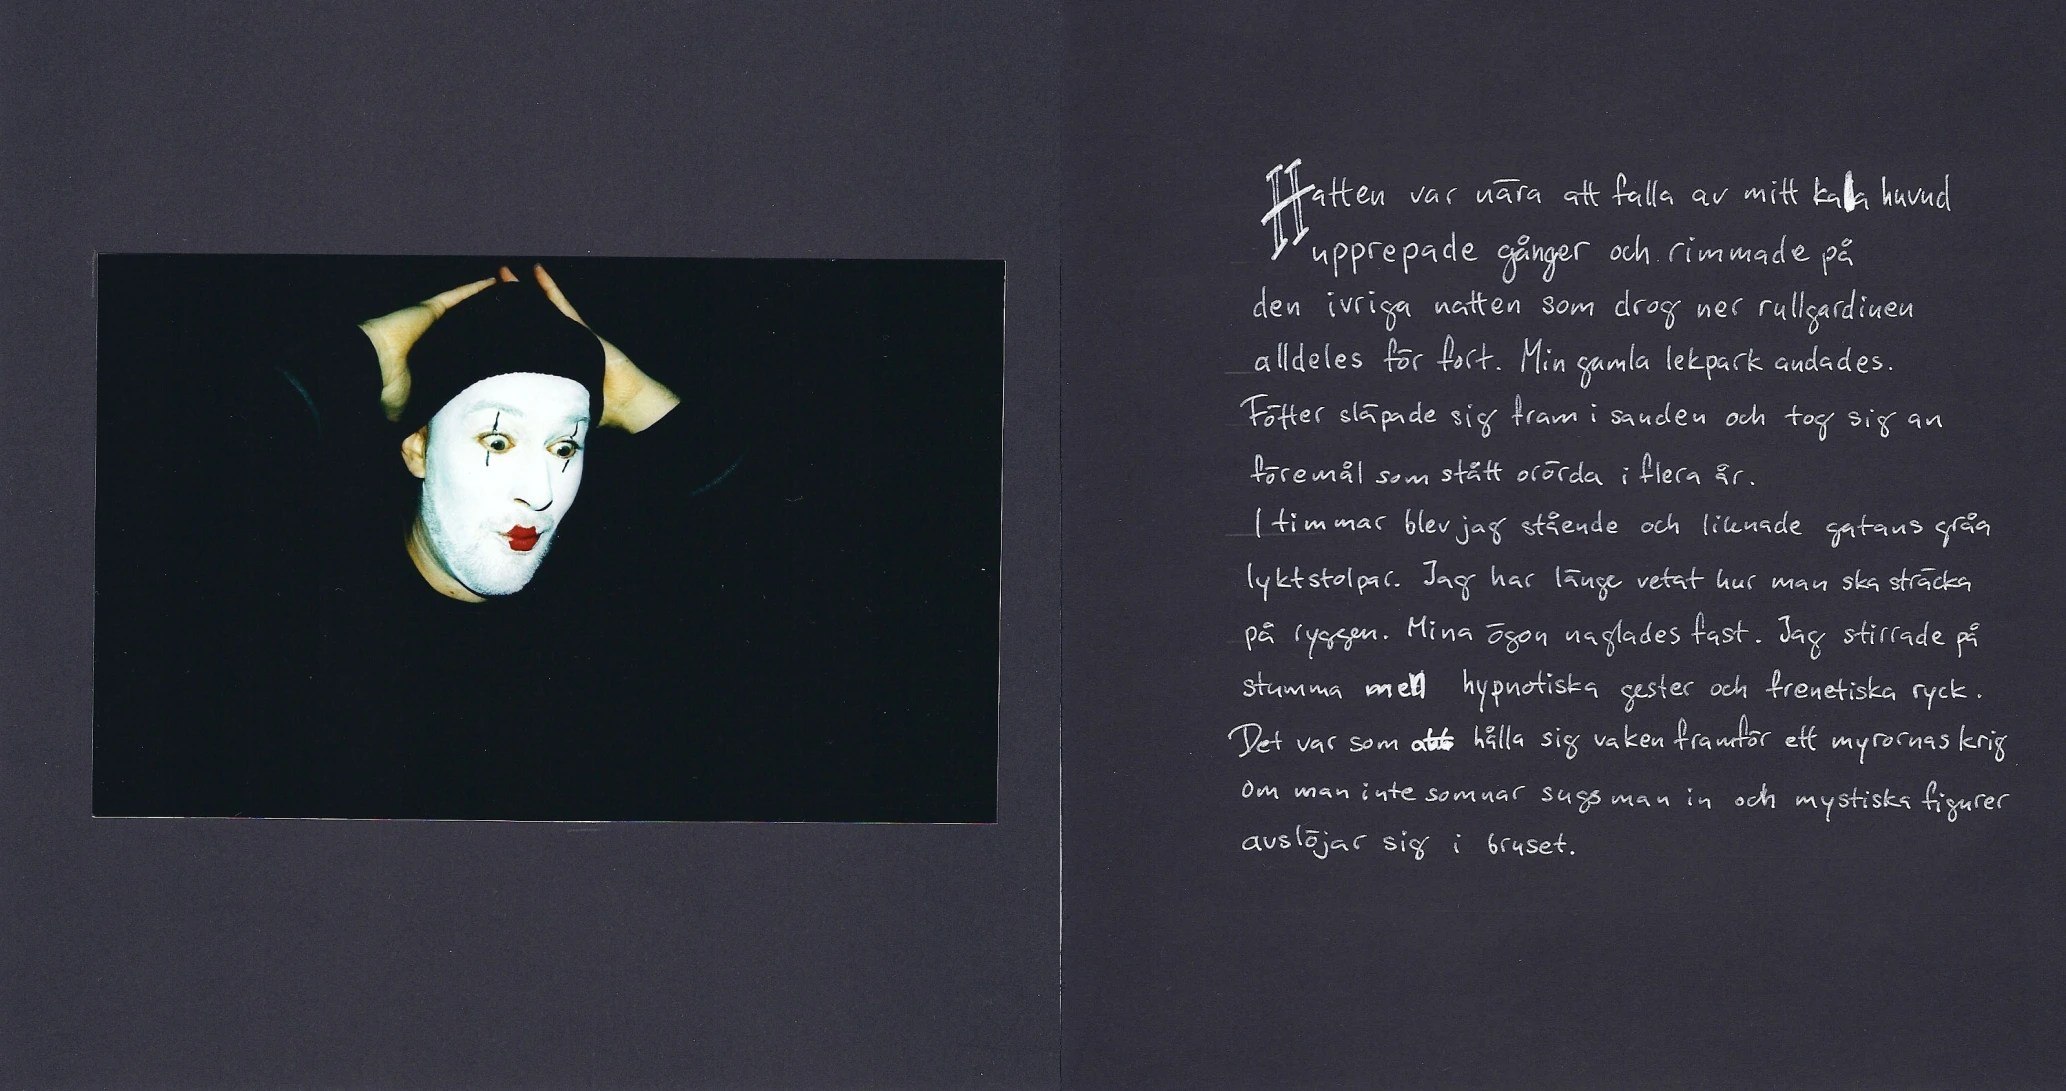 Hatten var nära att falla av mitt kala huvud
upprepade gånger och rimmade på
den ivriga natten som drog ner rullgardinen
alldeles för fort. Min gamla lekpark andades.
Fötter släpade sig fram i sanden och tog sig an
föremål som stått orörda i flera år.
I timmar blev jag stående och liknade gatans gråa
lyktstolpar. Jag har länge vetat hur man ska sträcka
på ryggen. Mina ögon naglades fast. Jag stirrade på
stumma men hypnotiska gester och frenetiska ryck.
Det var som att hålla sig vaken framför ett myrornas krig
om man inte somnar sugs man in och mystiska figurer
avslöjar sig i bruset.